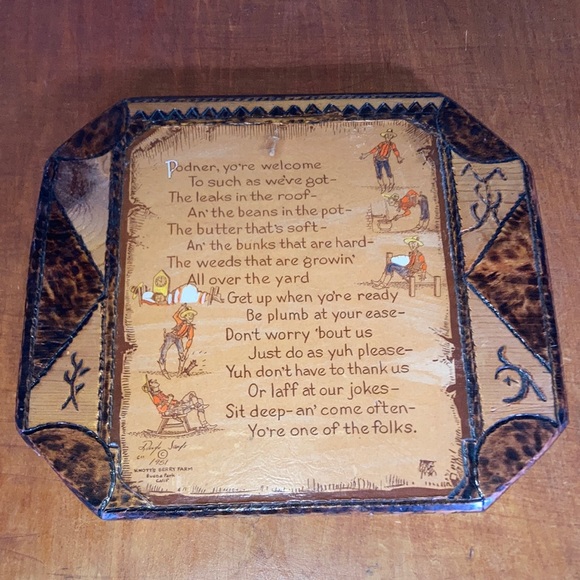 Podner, yo're welcome
To such as we've got-
The leaks in the roof-
An' the beans in the pot-
The butter that's soft-
An' the bunks that are hard-
The weeds that are growin'
All over the yard
Get up when yo're ready
Be plumb at your ease-
Don't worry 'bout us
Just do as yuh please-
Yuh don't have to thank us
Or laff at our jokes-
Sit deep-an' come often-
Yo're one of the folks.
©
KNOTT'S BERRY FARM
Buena Park
Calif